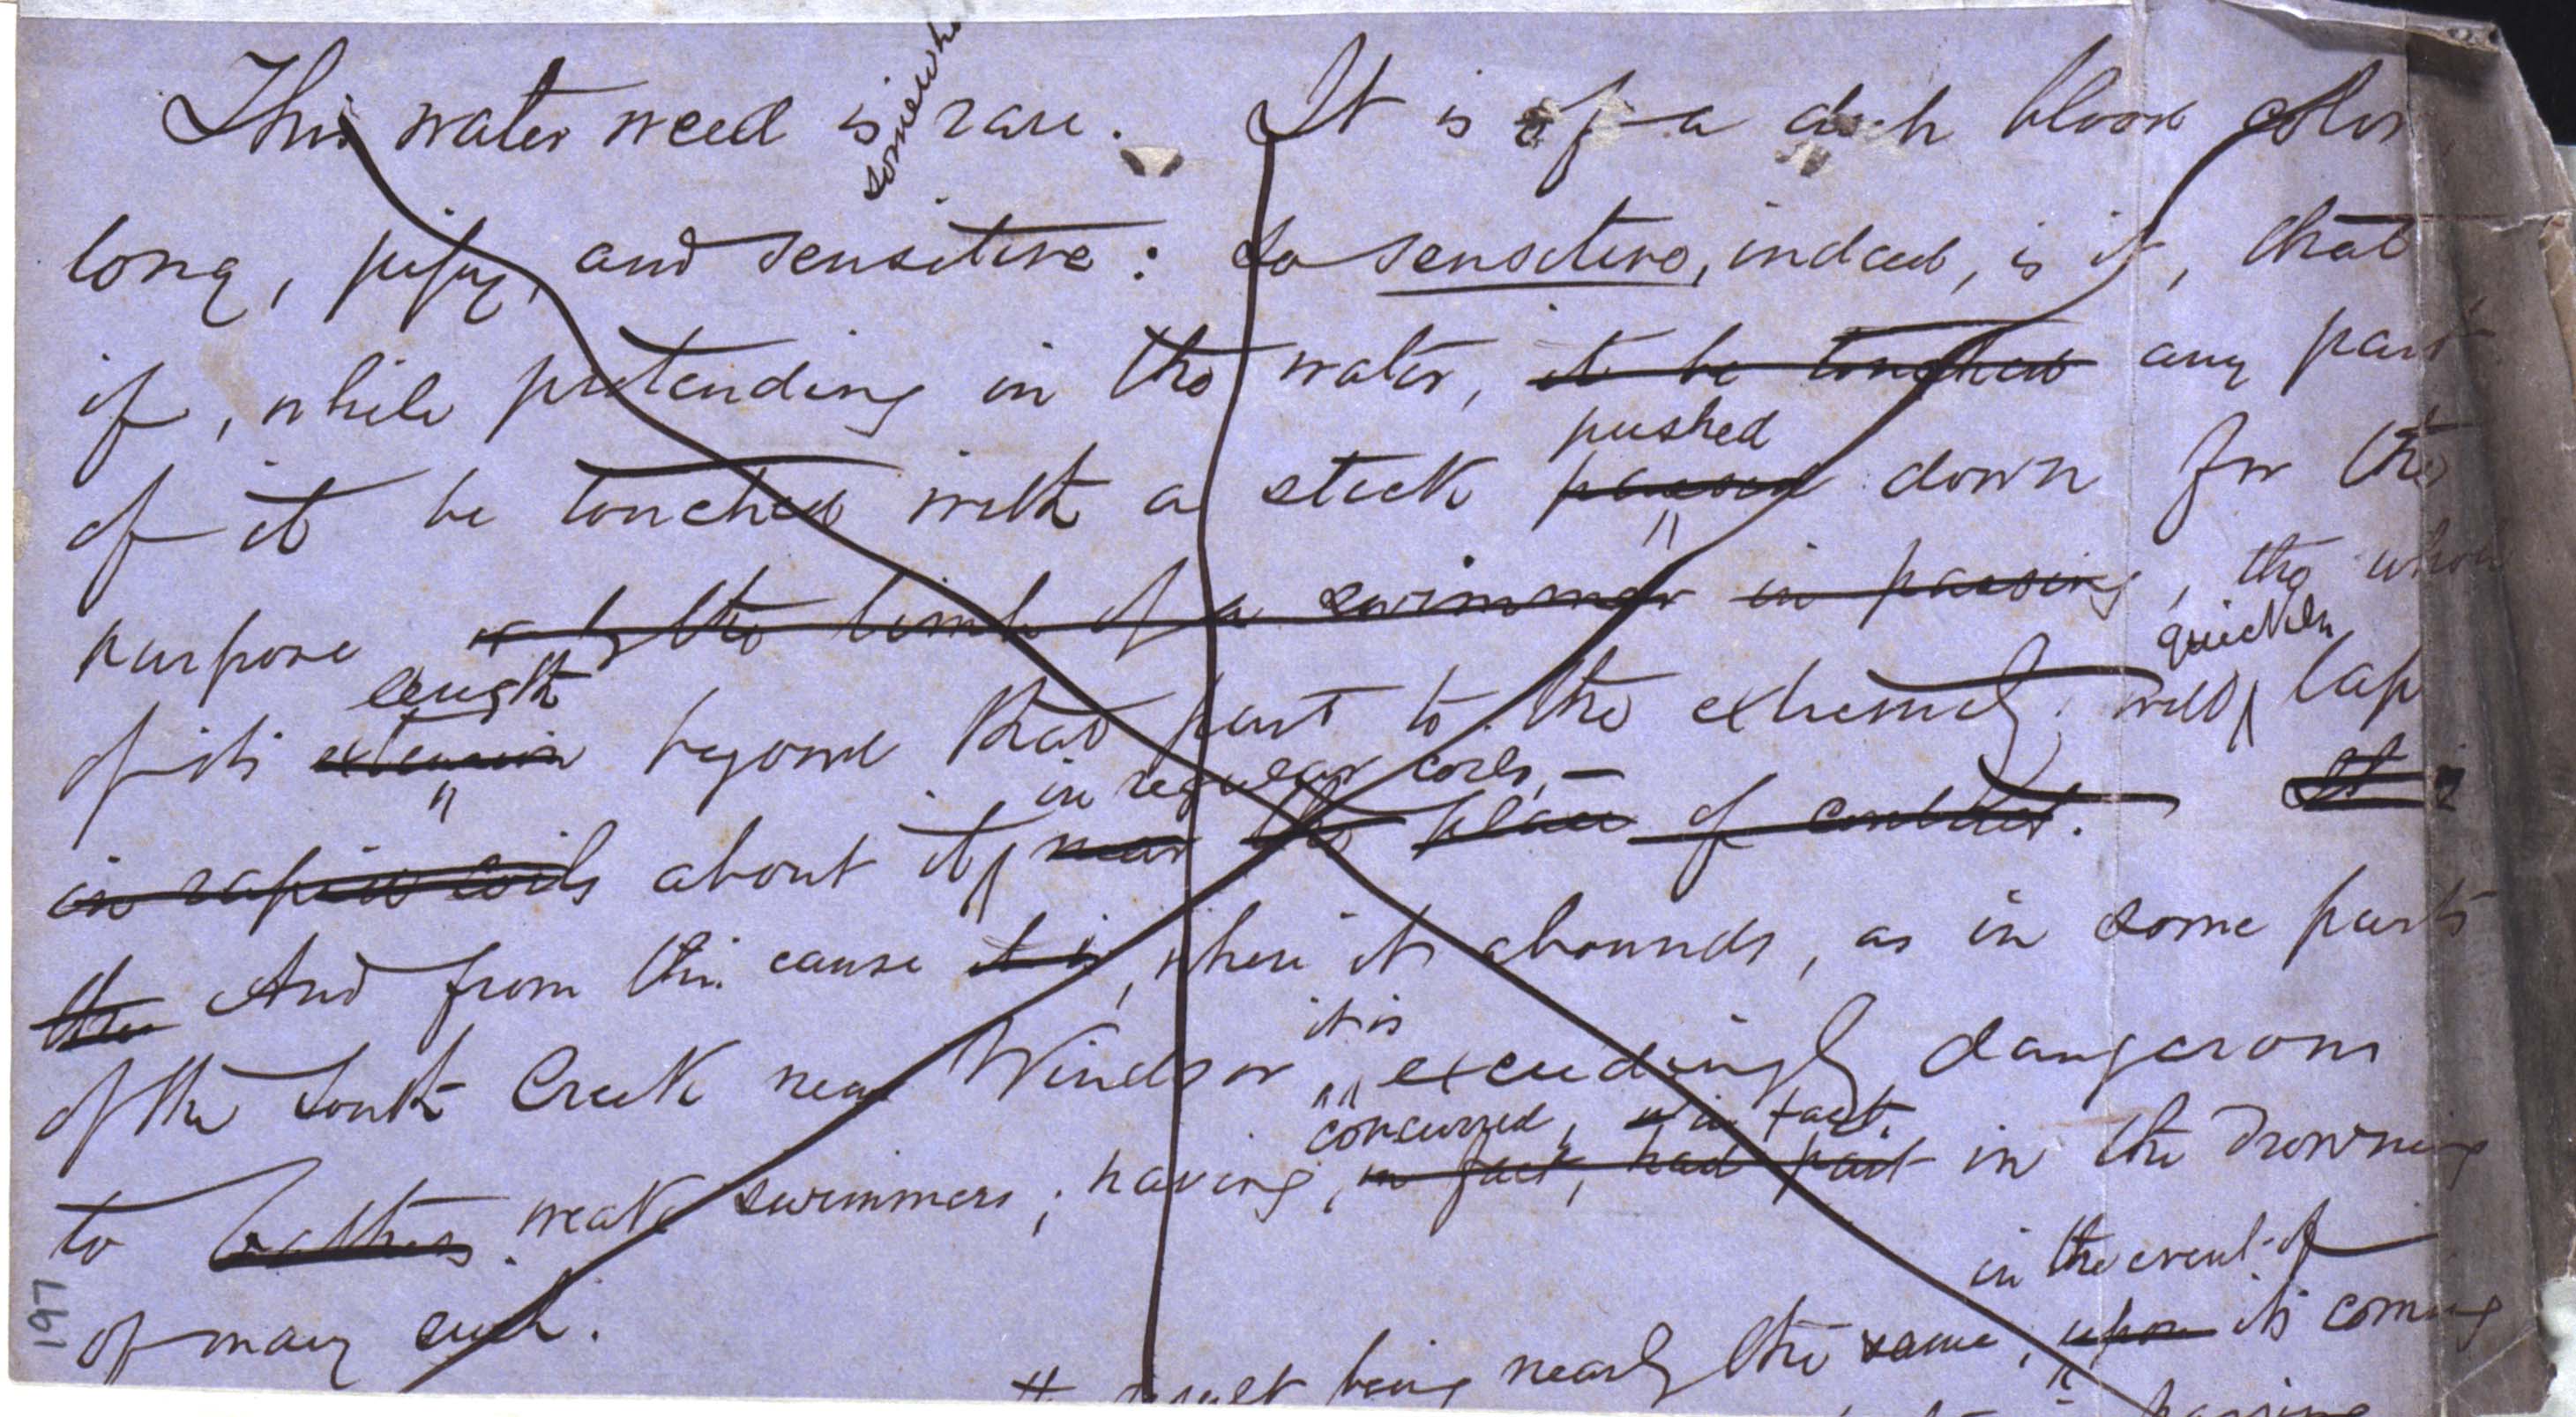 This water weed is somewhat rare. It is of a dark bloom color,
long, pipy, and sensitive: so sensitive, indeed, is it, that
if, while pretending in the water, it be touched any part
pushed
of it be touched with a stick passed down for the
purpose or by the limb of a swimmer in passing, the whole
length
quickly
of its extension beyond that part to the extremity will lap
in regular coils, —
in rapid coils about it, near the place of contact. It is
the And from this cause it is, where it abounds, as in some parts
it is
of the South Creek near Windsor exceedingly dangerous
concurred, in fact,
to bathers weak swimmers; having, in fact, had part in the drowning
in the event of
of many such.
result being nearly the same, upon its coming
passing
197